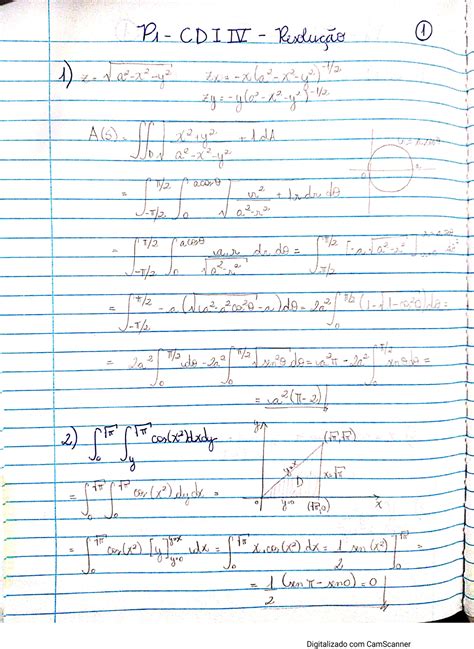 P1 - CDI IV - Resolução ①
1) z = √(a²-x²-y²)   zx = -x(a²-x²-y²)^(-1/2)
zy = -y(a²-x²-y²)^(-1/2)
A(S) = ∬_D √((x²+y²)/(a²-x²-y²) + 1) dA
= ∫_{-π/2}^{π/2} ∫_0^{a cosθ} √(r²/(a²-r²) + 1) r dr dθ
= ∫_{-π/2}^{π/2} ∫_0^{a cosθ} a r/√(a²-r²) dr dθ = ∫_{-π/2}^{π/2} [-a√(a²-r²)] dθ
= ∫_{-π/2}^{π/2} -a(√(a²-a²cos²θ) - a) dθ = 2a² ∫_0^{π/2} (1-√(1-cos²θ)) dθ =
= 2a² ∫_0^{π/2} dθ - 2a² ∫_0^{π/2} √(sen²θ) dθ = a²π - 2a² ∫_0^{π/2} senθ dθ =
= a²(π-2)
2) ∫_0^{√π} ∫_y^{√π} cos(x²) dx dy
y
(√π,√π)
y=x
x=√π
D
0
y=0
(√π,0)
x
= ∫_0^{√π} ∫_0 cos(x²) dy dx =
= ∫_0^{√π} cos(x²) [y]_{y=0}^{y=x} dx = ∫_0^{√π} x.cos(x²) dx = 1/2 sen(x²)|_0^{√π}
= 1/2 (sen π - sen 0) = 0
Digitalizado com CamScanner